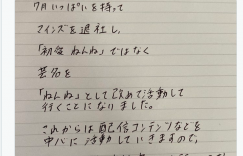 7月いっぱいを持って
マインズを退社し、
「初愛 ねんね」ではなく
芸名を
「ねんね」として改めて活動して
行くことになりました。
これからは配信コンテンツなどを
中心に活動していきますので、